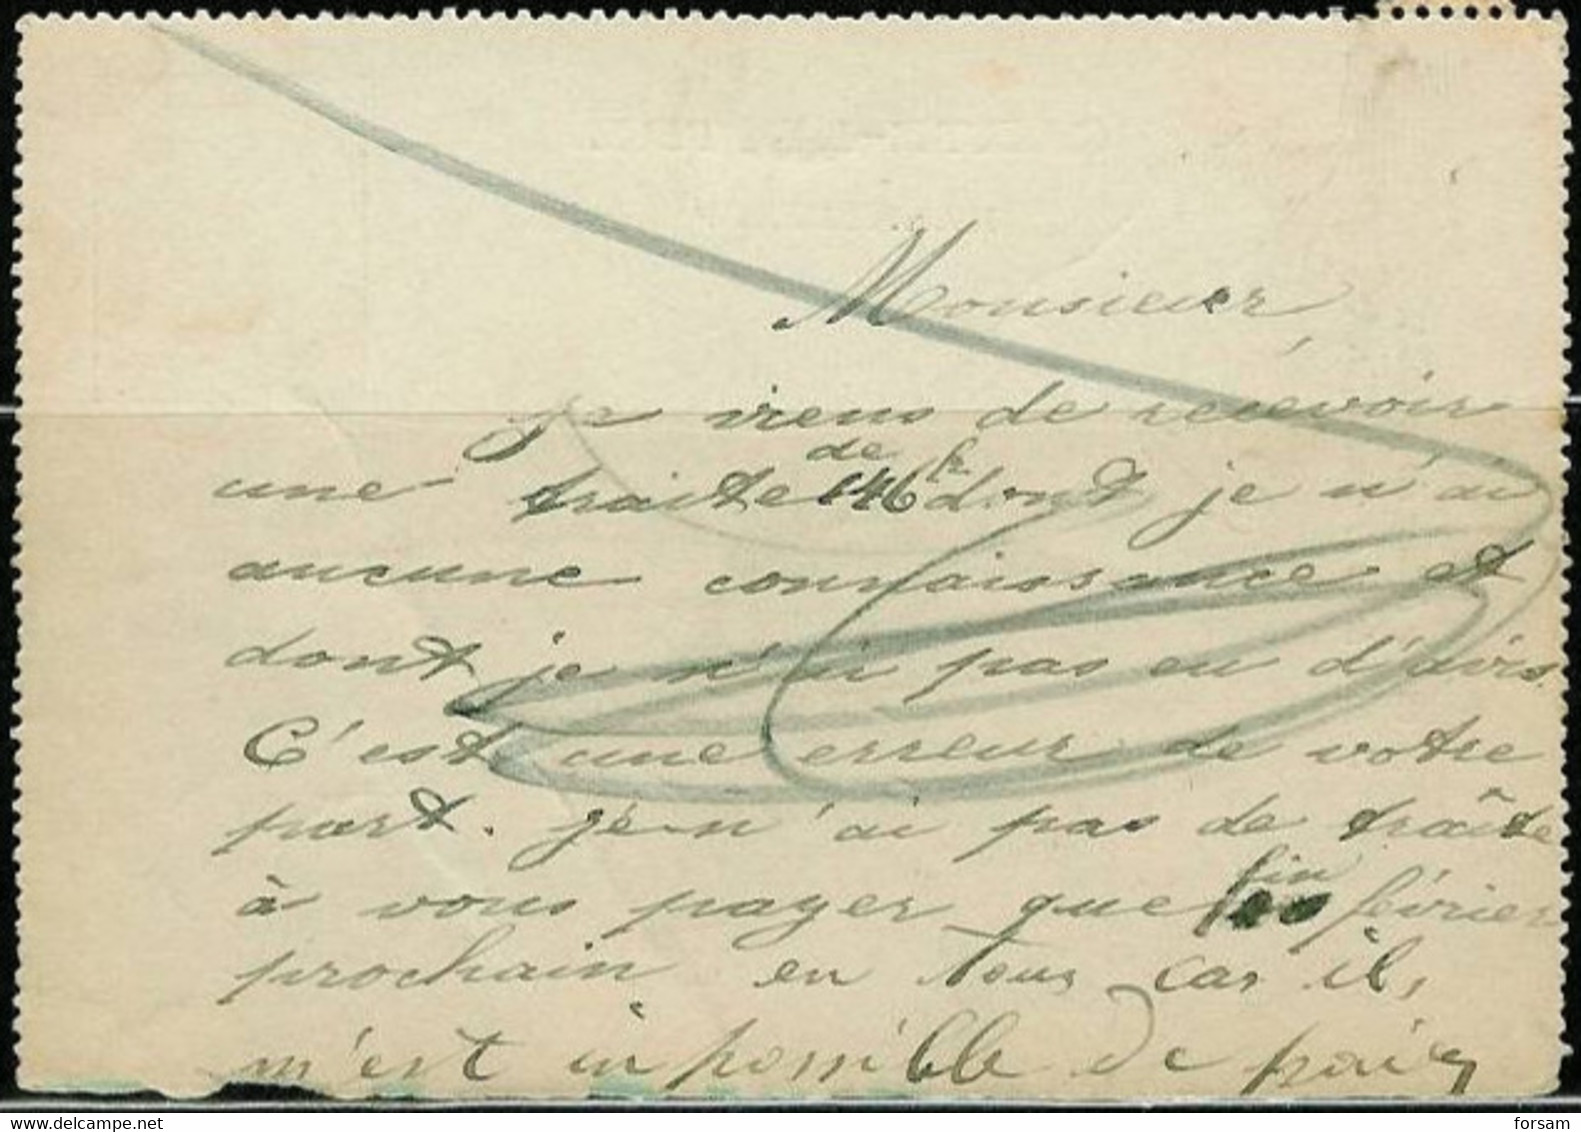 Monsieur
je viens de recevoir
une traite de 146 fr dont je n'ai
aucune connaissance et
dont je n'ai pas eu d'avis.
C'est une erreur de votre
part. je n'ai pas de traîte
à vous payer que fin février
prochain en tous cas il
m'est impossible de paier
www.delcampe.net
forsam